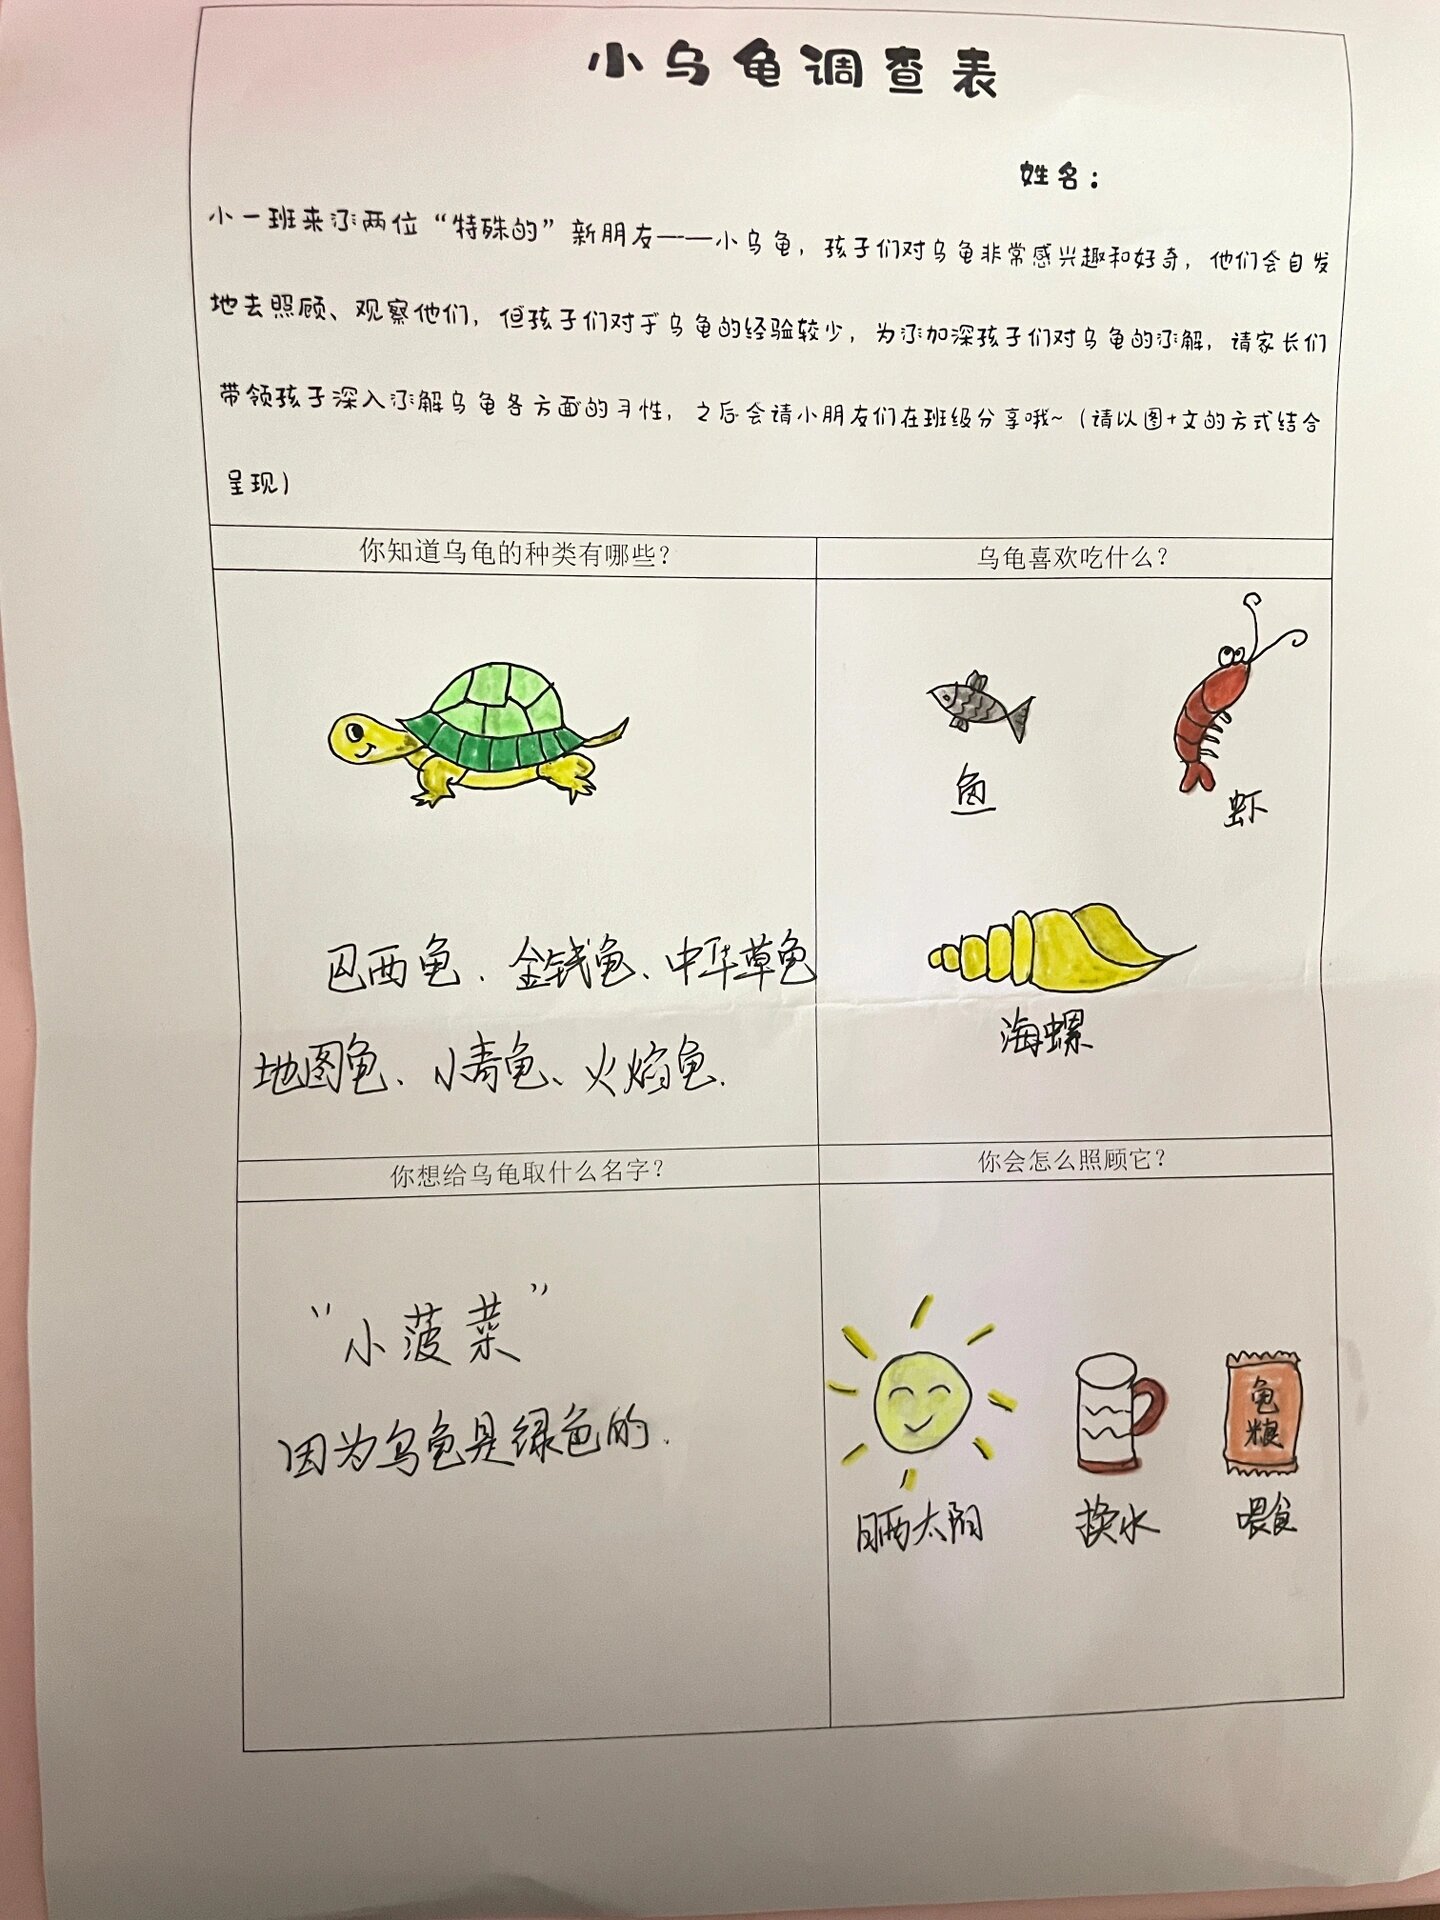 小乌龟调查表
姓名：
小一班来了两位“特殊的”新朋友——小乌龟，孩子们对乌龟非常感兴趣和好奇，他们会自发
地去照顾、观察他们，但孩子们对于乌龟的经验较少，为了加深孩子们对乌龟的了解，请家长们
带领孩子深入了解乌龟各方面的习性，之后会请小朋友们在班级分享哦~（请以图+文的方式结合
呈现）
你知道乌龟的种类有哪些？
巴西龟、金钱龟、中华草龟
地图龟、小青龟、火焰龟.
乌龟喜欢吃什么？
鱼
虾
海螺
你想给乌龟取什么名字？
“小菠菜”
因为乌龟是绿色的.
你会怎么照顾它？
龟
粮
晒太阳
换水
喂食